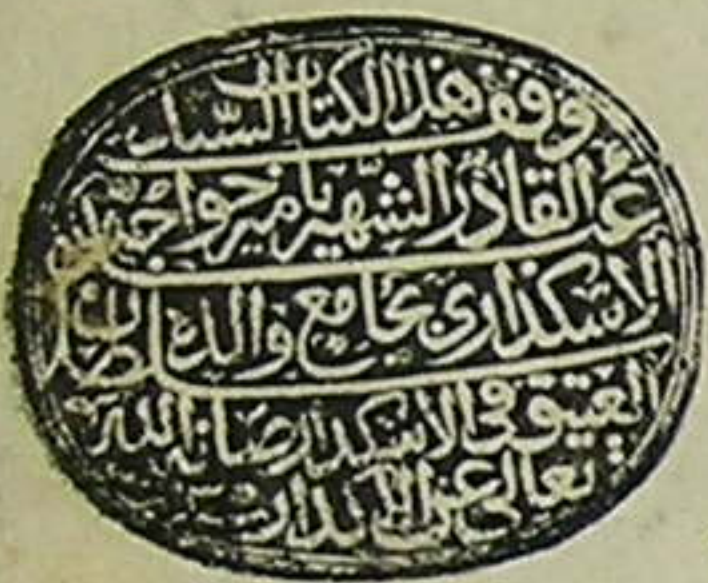 وقف هذا الكتاب السيد
عبد القادر الشهير بامير خواجه
الاسكداري بجامع والده سلطان
العتيق في الاسكدار صانه الله
تعالى عن الاندار